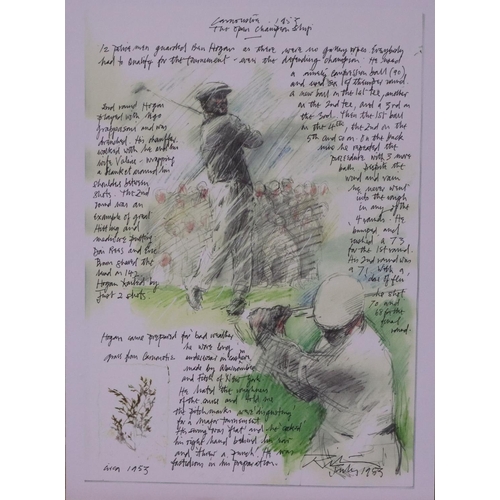 Carnoustie. 1953
The Open Championship
12 policemen guarded Ben Hogan as there were no gallery ropes. Everybody
had to qualify for the tournament - even the defending champion. He used
a compression ball (90)
and used
a new ball on the 1st tee, another
on the 2nd tee, and a 3rd on
the 3rd. Then the 1st ball
on the 4th, the 2nd on the
5th and so on. On the back
nine he repeated the
procedure with 3 more
balls despite the
wind and rain
he never went
into the rough
in any of the
4 rounds. He
bumped and
a 73
for the 1st round.
His 2nd round was
a 71 with a
he shot
70 and
68 for the
final
round.
2nd round Hogan
played with Ugo
Grappasonni and was
drenched. His chauffeur
walked with he and his
wife Valerie - wrapping
a blanket around his
shoulders between
shots. The 2nd
round was an
example of great
hitting and
mediocre putting
Dai Rees and Eric
Brown shared the
lead on 142
Hogan trailed by
just 2 shots
Hogan came prepared for bad weather
he wore long
underwear in cashmere,
made by Abercrombie
and Fitch of New York
He hated the roughness
of the course and told me
the pitchmarks were 'disgusting'
for a major tournament
swing was flat and he
his right hand behind his
and 'threw a punch'. He was
fastidious in his preparation.
grass from Carnoustie
circa 1953
July 1983